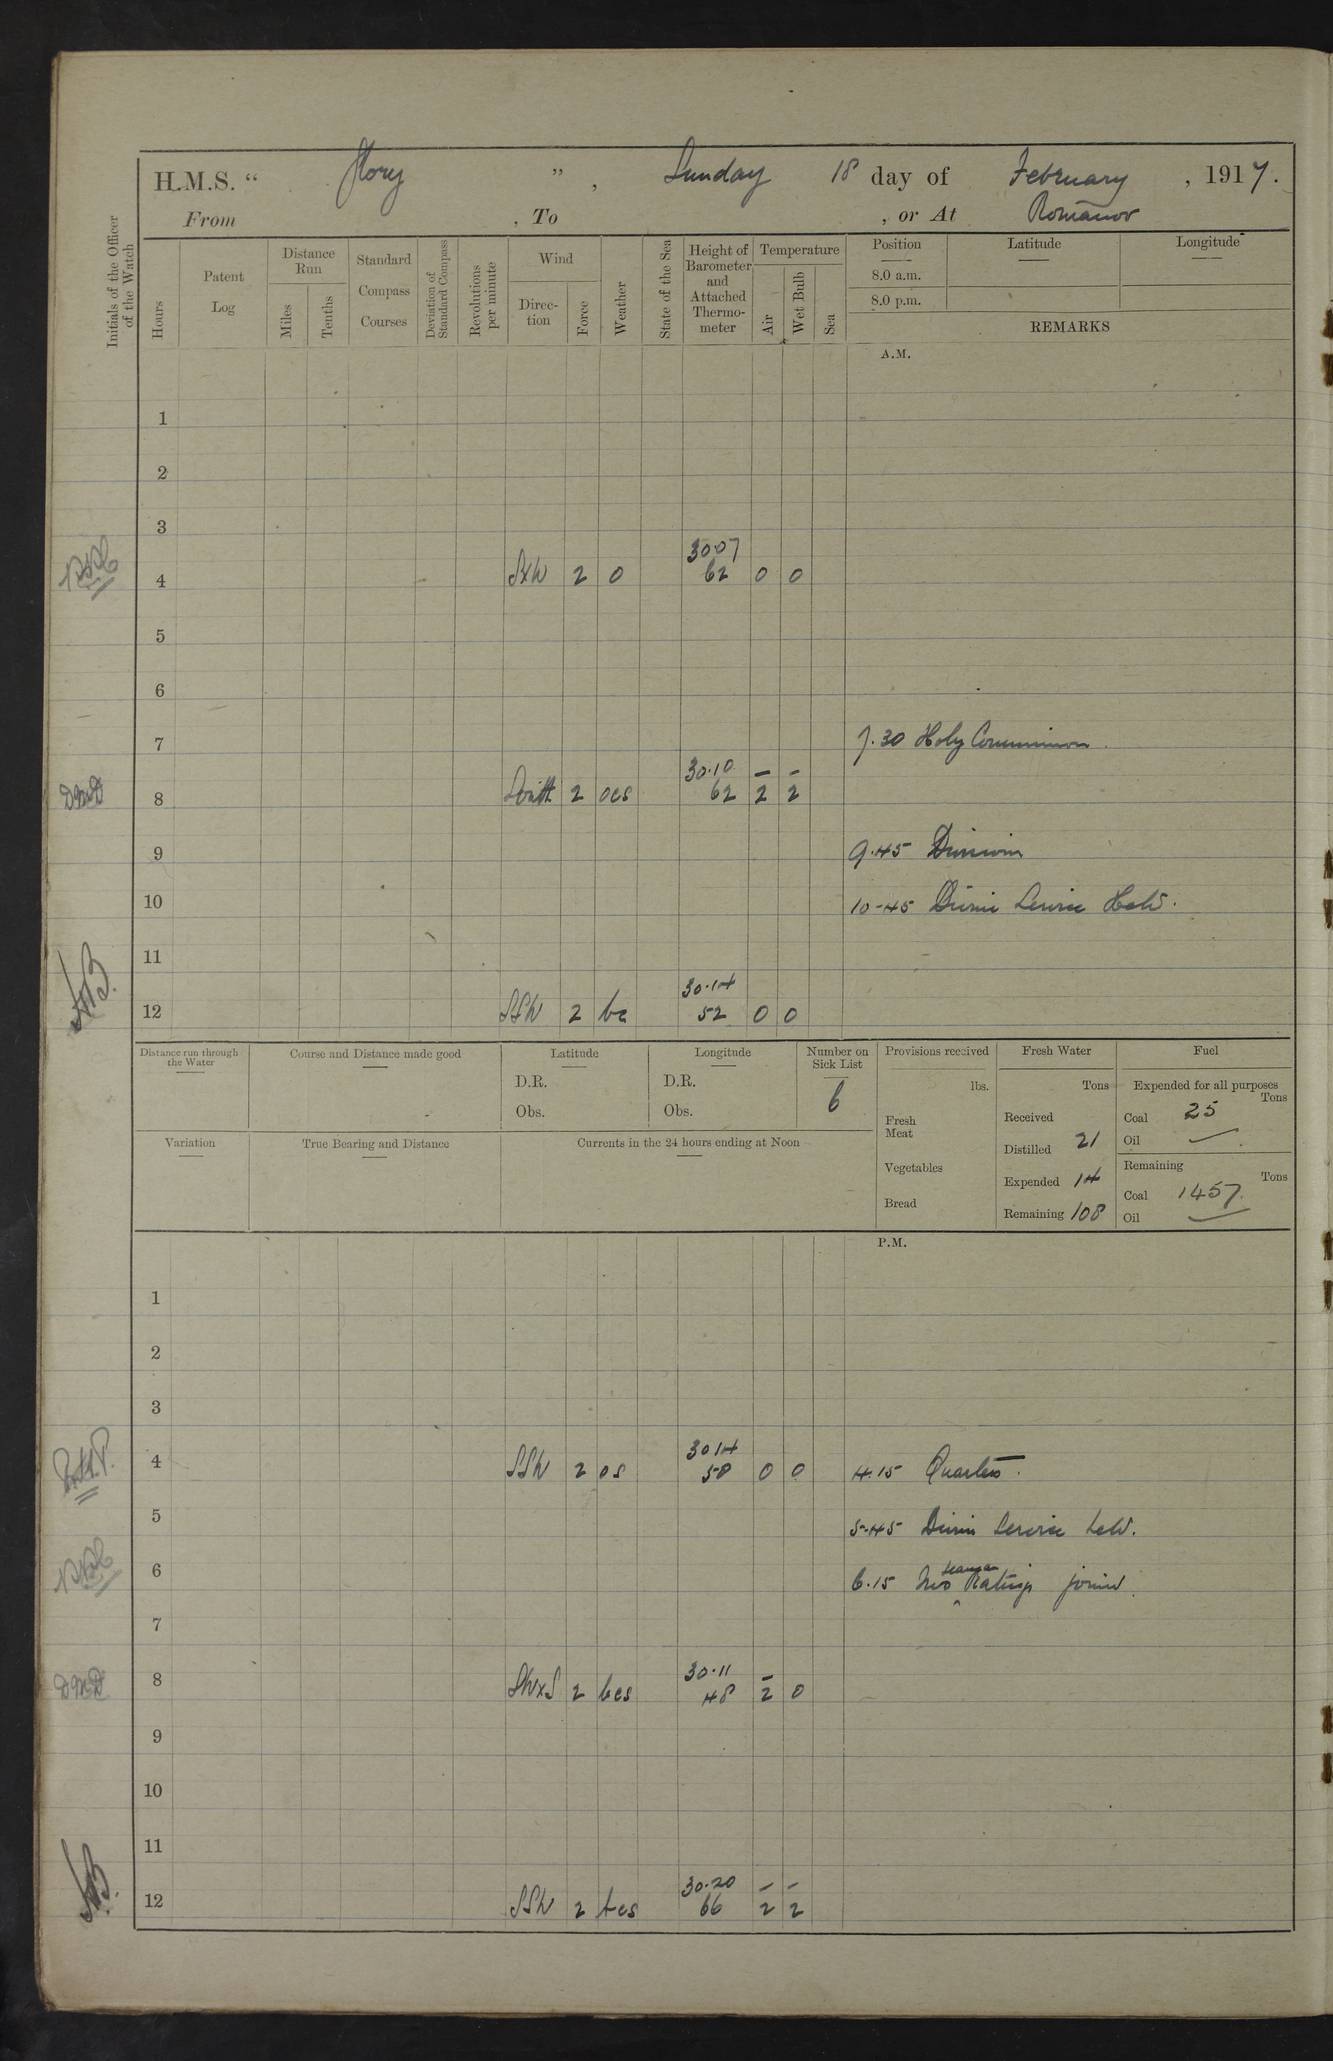 H.M.S. “ Glory ” , Sunday 18 day of February , 1917.
From , To , or At Romanov
Initials of the Officer of the Watch
Hours
Patent Log
Distance Run
Miles
Tenths
Standard Compass Courses
Deviation of Standard Compass
Revolutions per minute
Wind
Direc-tion
Force
Weather
State of the Sea
Height of Barometer and Attached Thermo-meter
Temperature
Air
Wet Bulb
Sea
Position
Latitude
Longitude
8.0 a.m.
8.0 p.m.
REMARKS
A.M.
1
2
3
30.07
4 SxW 2 o 62 0 0
5
6
7 7.30 Holy Communion.
30.10 – –
DMD 8 South 2 ocs 62 2 2
9 9.45 Divisions
10 10-45 Divine Service Held.
11
30.14
12 SSW 2 bc 52 0 0
Distance run through the Water
Course and Distance made good
Latitude
D.R.
Obs.
Longitude
D.R.
Obs.
Number on Sick List
6
Provisions received
lbs.
Fresh Meat
Vegetables
Bread
Fresh Water
Tons
Received
Distilled 21
Expended 14
Remaining 108
Fuel
Expended for all purposes
Tons
Coal 25
Oil —
Remaining
Tons
Coal 1457.
Oil —
Variation
True Bearing and Distance
Currents in the 24 hours ending at Noon
P.M.
1
2
3
30 14
4 SSW 2 os 58 0 0 4.15 Quarters.
5 5-45 Divine Service held.
6 6.15 Two seaman Ratings joined.
7
30.11 –
DMD 8 SWxS 2 bcs 48 2 0
9
10
11
30.20 – –
12 SSW 2 bcs 66 2 2